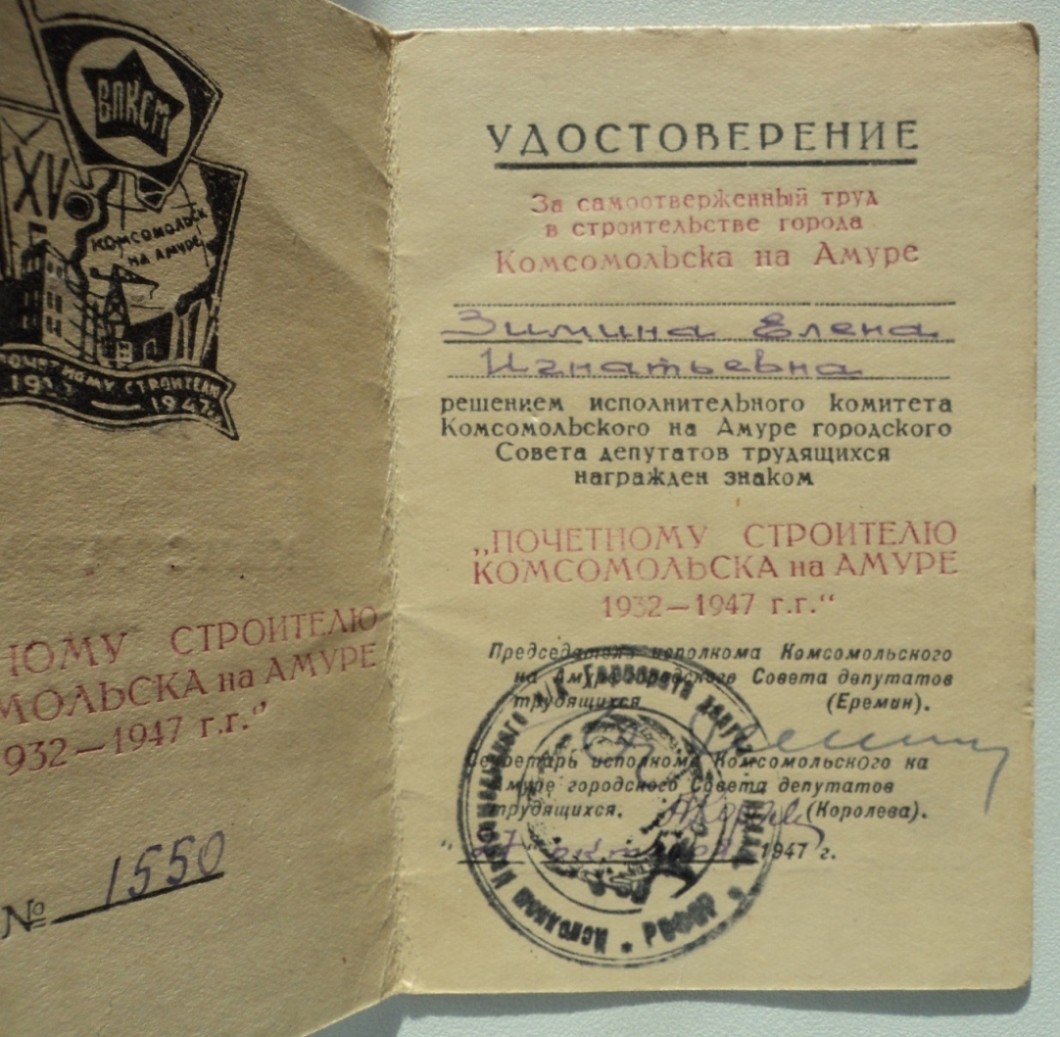 ВЛКСМ
XV
КОМСОМОЛЬСК
НА АМУРЕ
ПОЧЕТНОМУ СТРОИТЕЛЮ
1932 — 1947
СТРОИТЕЛЮ
на АМУРЕ
1932—1947 г.г."
№ 1550
УДОСТОВЕРЕНИЕ
За самоотверженный труд
в строительстве города
Комсомольска на Амуре
Зимина Елена
Игнатьевна
решением исполнительного комитета
Комсомольского на Амуре городского
Совета депутатов трудящихся
награжден знаком
„ПОЧЕТНОМУ СТРОИТЕЛЮ
КОМСОМОЛЬСКА на АМУРЕ
1932—1947 г.г.“
Председатель исполкома Комсомольского
на Амуре городского Совета депутатов
трудящихся (Еремин).
Секретарь исполкома Комсомольского на
Амуре городского Совета депутатов
трудящихся. (Королева).
"27" октября 1947 г.
Исполком РСФСР